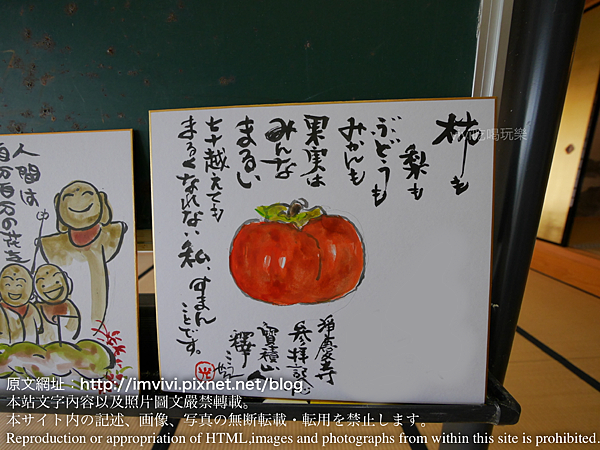 柿も
梨も
ぶどうも
みかんも
果実は
みんな
まるい
七十越えても
まるくなれない私、すまん
ことです。
参拝記念
寳積山
人間は
百万百万の花を
吃喝玩樂
原文網址：http://imvivi.pixnet.net/blog
本站文字內容以及照片圖文嚴禁轉載。
本サイト内の記述、画像、写真の無断転載・転用を禁止します。
Reproduction or appropriation of HTML,images and photographs from within this site is prohibited.